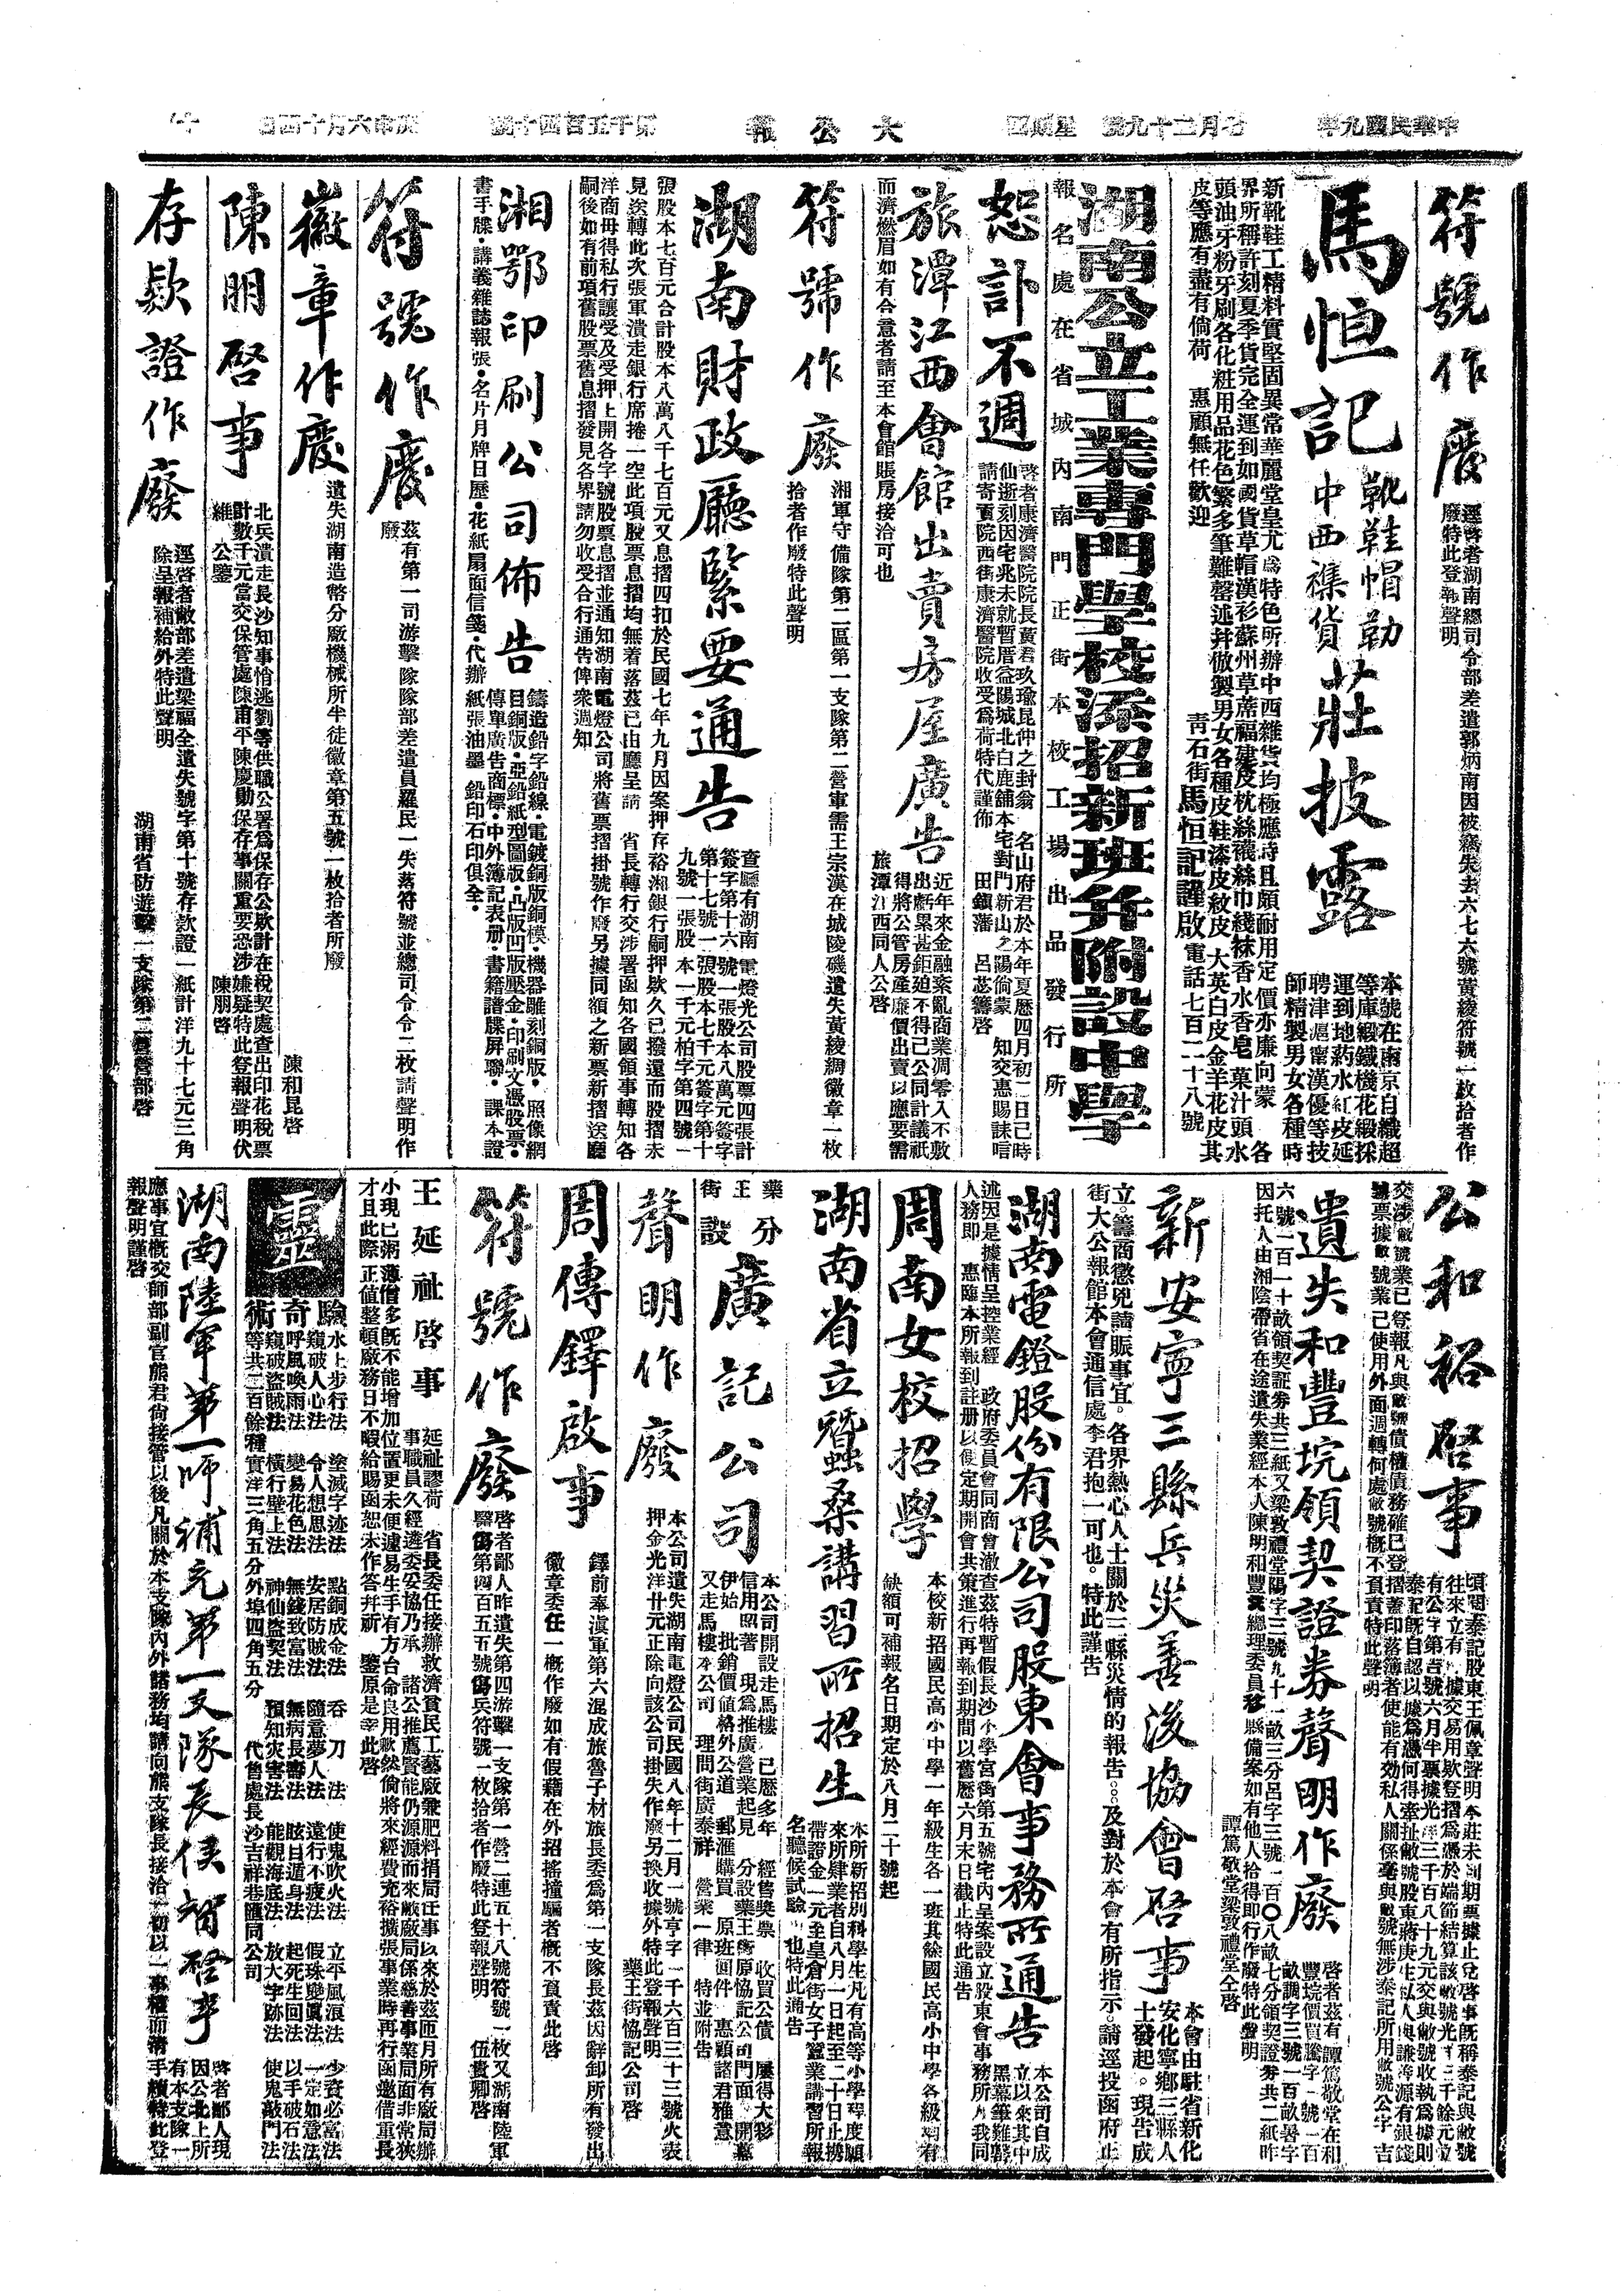 中華民國九年
七月二十九號
星期四
大公報
第千五百四十號
庚申六月十四日
符號作廢
逕啓者湖南總司令部差遣郭炳南因被竊失去六七六號黃綾符號一枚拾者作
廢特此登報聲明
馬恒記
靴鞋帽勒
中西襍貨
莊披露
本號在南京自織超
等庫緞鐵機花緞採
運到地葯水紅皮延
聘津滬甯漢優等技
師精製男女各種時
新靴鞋工精料實堅固異常華麗堂皇尤為特色所辦中西雜貨均極應時且頗耐用定價亦廉向蒙 各
界所稱許刻夏季貨完全運到如國貨草帽漢衫蘇州草蓆福建皮枕絲襪絲巾綫袜香水香皂菓汁頭水
頭油牙粉牙刷各化粧用品花色繁多筆難罄述并倣製男女各種皮鞋漆皮紋皮大英白皮金羊花皮其
皮等應有盡有倘荷 惠顧無任歡迎
青石街馬恒記謹啟 電話七百二十八號
湖南公立工業專門學校添招新班幷附設中學
報名處在省城內南門正街本校工場出品發行所
恕訃不週
啓者康濟醫院院長黃君玖瑜昆仲之封翁 名山府君於本年夏歷四月初二日已時
仙逝刻因宅兆未就暫厝益陽城北白鹿舖本宅對門新山之陽倘蒙 知交惠賜誄唁
請寄西院西街康濟醫院收受為荷特代謹佈 田鎮藩 呂苾籌啓
旅潭江西會館出賣房屋廣告
近年來金融紊亂商業凋零入不敷
出虧累甚鉅迫不得已公同計議祇
得將公管房產廉價出賣以應要需
而濟燃眉如有合意者請至本會館賬房接洽可也
旅潭江西同人公啓
符號作廢
湘軍守備隊第二區第一支隊第二營軍需王宗漢在城陵磯遺失黃綾綢徽章一枚
拾者作廢特此聲明
湖南財政廳緊要通告
查廳有湖南電燈光公司股票四張計
簽字第十六號一張股本八萬元簽字
第十七號一張股本七千元簽字第十
九號一張股本一千元柏字第四號一
張股本七百元合計股本八萬八千七百元又息摺四扣於民國七年九月因案押存裕湘銀行嗣押欵久已撥還而股摺未
見送轉此次張軍潰走銀行席捲一空此項股票息摺均無着落茲已由廳呈請 省長轉行交涉署函知各國領事轉知各
洋商毋得私行讓受及受押上開各字號股票息摺並通知湖南電燈公司將舊票摺掛號作廢另據同額之新票新摺送廳
嗣後如有前項舊股票舊息摺發見各界請勿收受合行通告俾衆週知
湘鄂印刷公司佈告
鑄造鉛字鉛線·電鍍銅版銅模·機器雕刻銅版·照像網
目銅版·亞鉛紙型圖版·凸版凹版壓金·印刷文憑股票·
傳單廣告商標·中外簿記表册·書籍譜牒屏聯·課本證
書手牒·講義雜誌報張·名片月牌日歷·花紙扇面信箋·代辦
紙張油墨 鉛印石印俱全·
符號作廢
茲有第一司游擊隊隊部差遣員羅民一失落符號並總司令令二枚請聲明作
廢
徽章作廢
遺失湖南造幣分廠機械所半徒徽章第五號一枚拾者所廢
陳和昆啓
陳朋啓事
北兵潰走長沙知事悄逃劉等供職公署為保存公欵計在稅契處查出印花稅票
計數千元當交保管處陳甫平陳慶勛保存事關重要恐涉嫌疑特此登報聲明伏
維 公鑒
陳朋啓
存欵證作廢
逕啓者敝部差遣梁福全遺失號字第十號存欵證一紙計洋九十七元三角
除呈報補給外特此聲明
湖南省防遊擊一支隊第二營營部啓
公和裕啓事
頃閱泰記股東王佩章聲明本莊未到期票據止兌啓事旣稱泰記與敝號
往來立有 據交易用欵登摺為憑於端節結算該敝號光 三千餘元立
有公字第 號六月半票據光洋三千百八十九元交與敝號收執為據則
泰記旣自認以據為憑何得牽扯敝號股東蔣庚生私人與謙 源有銀錢
交涉敝號業已登報凡與敝號債權債務確已登摺蓋印落簿者使能有効私人關係毫與敝號無涉泰記所用敝號公字 吉
號票據敝號業已使用外面週轉何處敝號槪不負責特此聲明
遺失和豐垸領契證券聲明作廢
啓者茲有譚篤敬堂在和
豐垸價買騰字 號一百
畝調字三號一百畝署字
六號一百一十畝領契証券共三紙又梁敦禮堂陽字三號九十一畝三分呂字三號一百〇八畝七分領契證劵共二紙昨
因托人由湘陰帶省在途遺失業經本人陳明和豐 總理委員移縣備案如有他人拾得即行作廢特此聲明
譚篤敬堂梁敦禮堂仝啓
新安寧三縣兵災善後協會啓事
本會由駐省新化
安化寧鄉三縣人
士發起。現告成
立。籌商懲兇請賑事宜。各界熱心人士關於三縣災情的報告。及對於本會有所指示。請逕投函府正
街大公報館本會通信處李君抱一可也。特此謹告
湖南電鐙股份有限公司股東會事務所通告
本公司自成
立以來其中
黑幕筆難罄
述因是據情呈控業經 政府委員會同商會澈查茲特暫假長沙小學宮街第五號宅內呈案設立股東會事務所凡我同
人務即 惠臨本所報到註册以便定期開會共策進行再報到期間以舊歷六月末日截止特此通告
周南女校招學
本校新招國民高小中學一年級生各一班其餘國民高小中學各級均有
缺額可補報名日期定於八月二十號起
湖南省立蠶桑講習所招生
本所新招別科學生凡有高等小學程度願
來所肆業者自八月一日起至二十日止携
帶證金一元至皇倉街女子蠶業講習所報
名聽候試驗 也特此通告
藥王街分設
廣記公司
本公司開設走馬樓 已歷多年 經售奬票 收買公債 屢得大彩
信用照著 現為推廣營業起見 分設藥王街原協記公司門面 開幕
伊始 批銷價値格外公道 郵滙購買 原班回件 惠顧諸君雅意
又走馬樓本公司 理問街廣泰祥 營業一律 特並附告
聲明作廢
本公司遺失湖南電燈公司民國八年十二月一號亨字一千六百三十三號火表
押金光洋廿元正除向該公司掛失作廢另換收據外特此登報聲明
藥王街協記公司啓
周傳鐸啟事
鐸前奉滇軍第六混成旅魯子材旅長委為第一支隊長茲因辭卸所有發出
徽章委任一槪作廢如有假藉在外招搖撞騙者槪不負責此啓
符號作廢
啓者鄙人昨遺失第四游擊一支隊第一營二連五十八號符號一枚又湖南陸軍
醫傷第四百五五號傷兵符號一枚拾者作廢特此登報聲明 伍貴卿啓
王延祉啓事
延祉謬荷 省長委任接辦救濟貧民工藝廠兼肥料捐局任事以來於茲匝月所有廠局辦
事職員久經遴委妥協乃承 諸公推薦賢能仍源源而來敝廠局係慈善事業局面非常狹
小現已粥薄僧多旣不能增加位置更未便遽易生手有方台命良用歉然倘將來經費充裕擴張事業時再行函邀借重長
才且此際正值整頓廠務日不暇給賜函恕未作答幷祈 鑒原是幸此啓
靈驗奇術
水上步行法 塗滅字迹法 點銅成金法 吞刀法 使鬼吹火法 立平風浪法 少資必富法
窺破人心法 令人想思法 安居防賊法 隨意夢人法 遠行不疲法 假珠變眞法 一定如意法
呼風喚雨法 變易花色法 無錢致富法 無病長壽法 眩目遁身法 起死生回法 以手破石法
窺破盜賊法 橫行壁上法 神仙盜契法 預知灾害法 能觀海底法 放大字跡法 使鬼敲門法
等共二百餘種實洋三角五分外埠四角五分 代售處長沙吉祥巷滙同公司
湖南陸軍第一師補充第一支隊長侯智啓事
啓者鄙人現
因公北上所
有本支隊一
應事宜槪交師部副官熊君尙接管以後凡關於本支隊內外諸務均請向熊支隊長接洽一切以一事權而淸手續特此登
報聲明謹啓